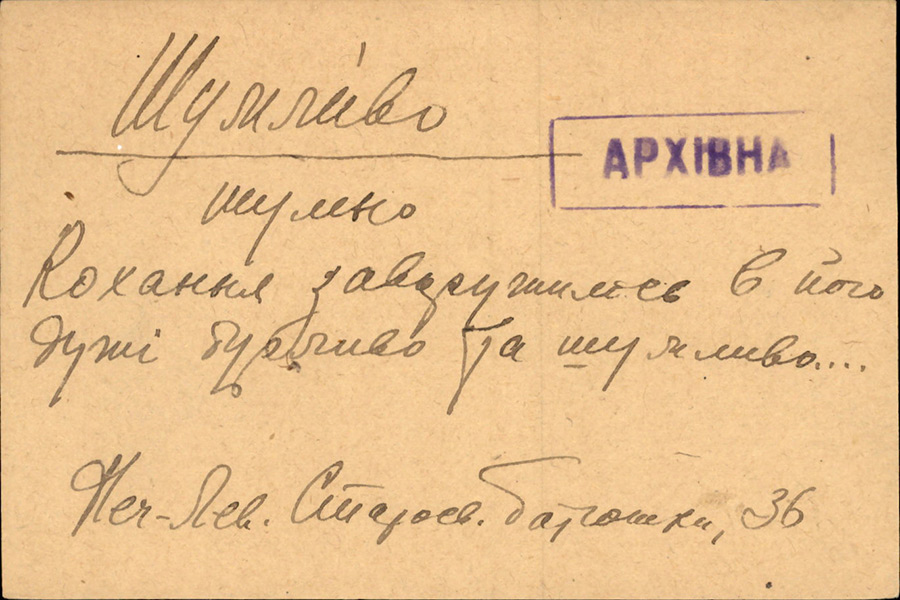 Шумли́во
АРХІВНА
шумно
Кохання заворушилось в його
душі бурхливо та шумливо....
Неч-Лев. Старосв. батюшки, 36